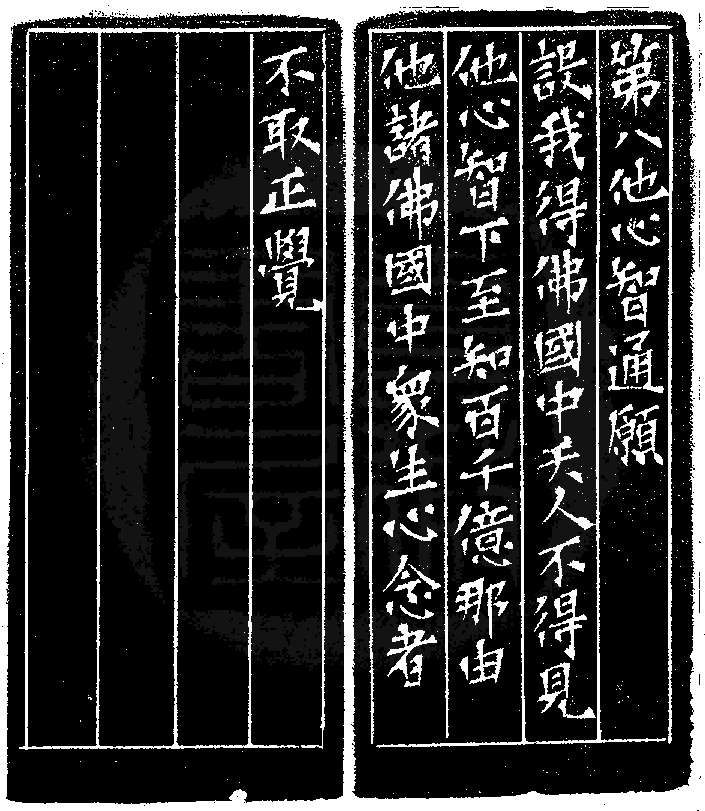 第八他心智通願
設我得佛國中天人不得見
他心智下至知百千億那由
他諸佛國中眾生心念者
不取正覺